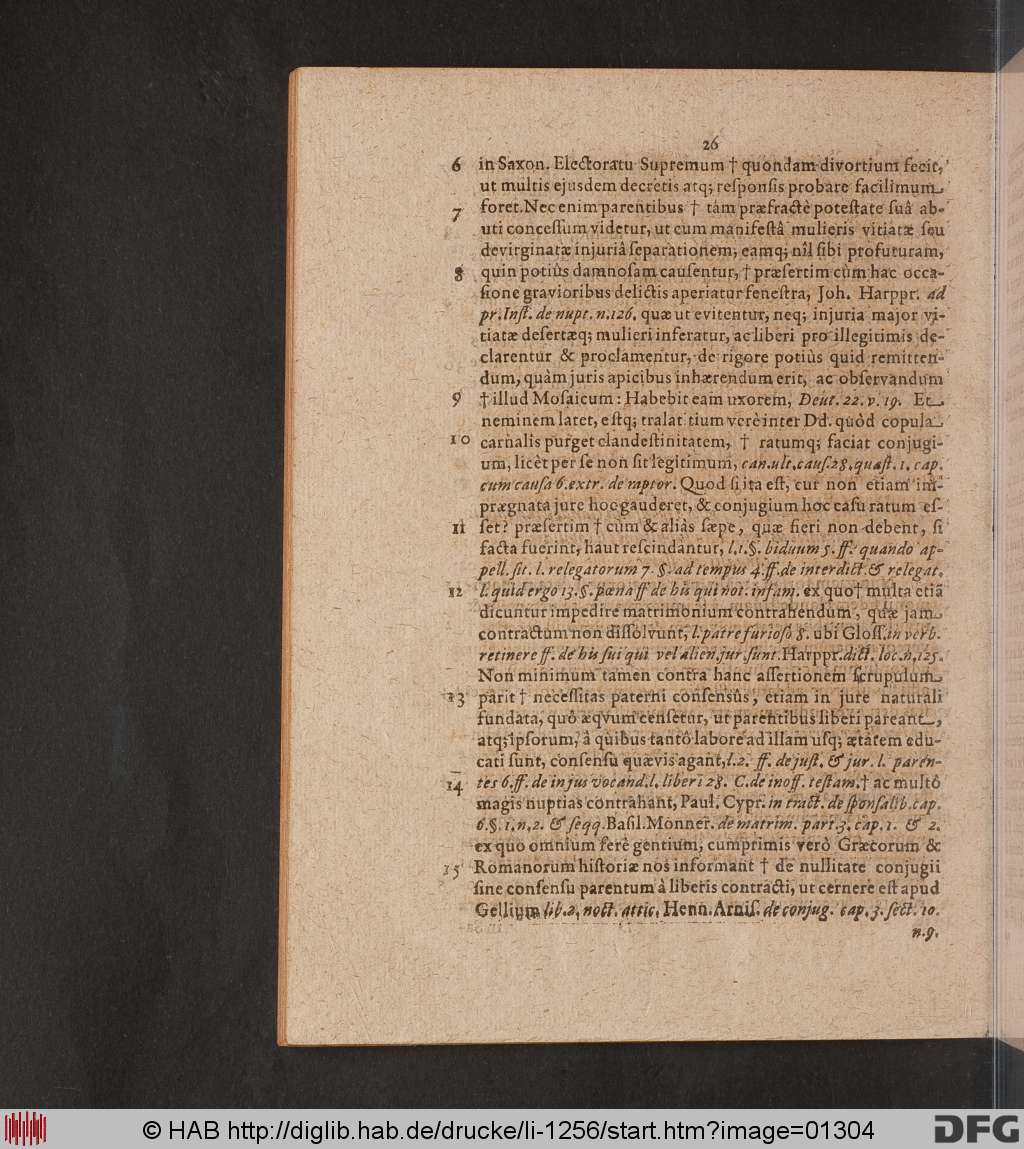 26
6 in Saxon. Electoratu Supremum † quondam divortium fecit,
ut multis ejusdem decretis atq; reſponſis probare facilimum
7 foret. Nec enim parentibus † tàm præfractè poteſtate ſuâ ab-
uti conceſſum videtur, ut cum manifeſtâ mulieris vitiatæ ſeu
devirginatæ injuriâ ſeparationem, eamq; nîl ſibi profuturam,
8 quin potiùs damnoſam cauſentur, † præſertim cùm hac occa-
ſione gravioribus delictis aperiatur feneſtra, Joh. Harppr. ad
pr. Inſt. de nupt. n. 126. quæ ut evitentur, neq; injuria major vi-
tiatæ deſertæq; mulieri inferatur, ac liberi pro illegitimis de-
clarentur & proclamentur, de rigore potiùs quid remitten-
dum, quàm juris apicibus inhærendum erit, ac obſervandum
9 † illud Moſaicum: Habebit eam uxorem, Deut. 22. v. 19. Et
neminem latet, eſtq; tralatitium verè inter Dd. quòd copula
10 carnalis purget clandeſtinitatem, † ratumq; faciat conjugi-
um, licèt per ſe non ſit legitimum, can. ult. cauſ. 28. quæſt. 1. cap.
cum cauſa 6. extr. de raptor. Quod ſi ita eſt, cur non etiam im-
prægnata jure hoc gauderet, & conjugium hoc caſu ratum eſ-
11 ſet? præſertim † cùm & aliàs ſæpe, quæ fieri non debent, ſi
facta fuerint, haut reſcindantur, l. 1. §. biduum 5. ff. quando ap-
pell. ſit. l. relegatorum 7. §. ad tempus 4. ff. de interdict. & relegat.
12 l. quid ergo 13. §. pœna ff de his qui not. infam. ex quo † multa etiã
dicuntur impedire matrimonium contrahendum, quæ jam
contractum non diſſolvunt, l. patre furioſo 8. ubi Gloſſ. in verb.
retinere ff. de his ſui qui vel alien. jur. ſunt. Harppr. dict. loc. n. 125.
Non minimum tamen contra hanc aſſertionem ſcrupulum
13 parit † neceſſitas paterni conſensûs, etiam in jure naturali
fundata, quô æqvum cenſetur, ut parentibus liberi pareant,
atq; ipſorum, à quibus tantô labore ad illam uſq; ætatem edu-
cati ſunt, conſenſu quævis agant, l. 2. ff. de juſt. & jur. l. paren-
14 tes 6. ff. de in jus vocand. l. liberi 28. C. de inoff. teſtam. † ac multô
magis nuptias contrahant, Paul. Cypr. in tract. de ſponſalib. cap.
6. §. 1. n. 2. & ſeqq. Baſil. Monner. de matrim. part. 3. cap. 1. & 2.
ex quo omnium ferè gentium, cumprimis verò Græcorum &
15 Romanorum hiſtoriæ nos informant † de nullitate conjugii
ſine conſenſu parentum à liberis contracti, ut cernere eſt apud
Gellium lib. 2. noct. attic. Henn. Arniſ. de conjug. cap. 3. ſect. 10.
n. 9.
© HAB http://diglib.hab.de/drucke/li-1256/start.htm?image=01304
DFG